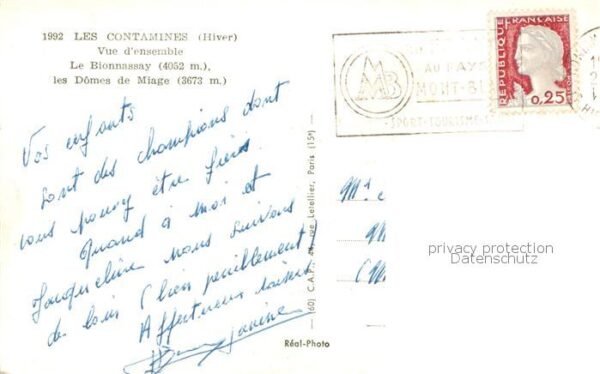 1992 LES CONTAMINES (Hiver)
Vue d'ensemble
Le Bionnassay (4052 m.),
les Dômes de Miage (3673 m.)
Vos enfants
sont des champions dont
vous pouvez être fiers.
Quand à moi et
Jacqueline nous suivons
de loin (bien péniblement
Affectueux baisers
Janine
(60) C.A.P., rue Letellier, Paris (15e)
Réal-Photo
AU PAYS
MONT-B
SPORT-TOURISME
MB
REPUBLIQUE FRANÇAISE
0,25
M
M
privacy protection
Datenschutz